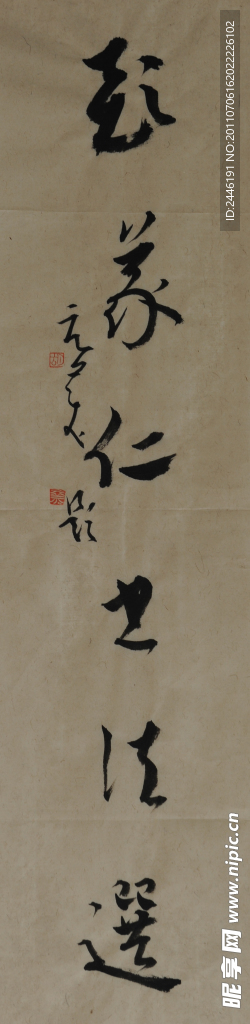 彭义仁书法选
题
ID:2446191 NO:20110706162022226102
昵享网 www.nipic.cn